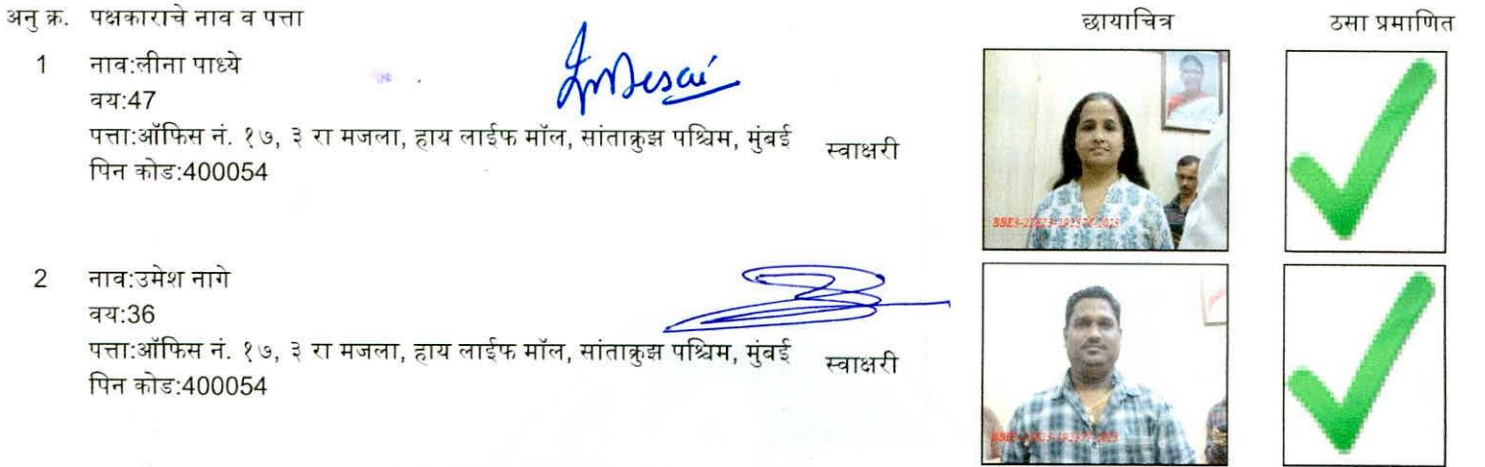 अनु क्र. पक्षकाराचे नाव व पत्ता छायाचित्र ठसा प्रमाणित
1 नाव:लीना पाध्ये
वय:47
पत्ता:ऑफिस नं. १७, ३ रा मजला, हाय लाईफ मॉल, सांताक्रुझ पश्चिम, मुंबई स्वाक्षरी
पिन कोड:400054
2 नाव:उमेश नागे
वय:36
पत्ता:ऑफिस नं. १७, ३ रा मजला, हाय लाईफ मॉल, सांताक्रुझ पश्चिम, मुंबई स्वाक्षरी
पिन कोड:400054